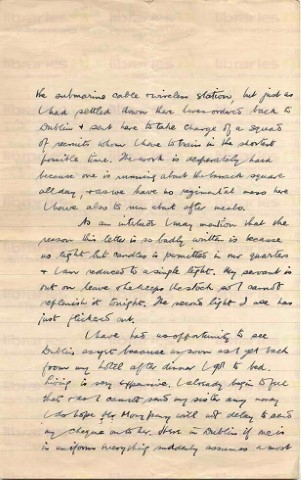 the submarine cable & wireless station, but just as
I had settled down there I was ordered back to
Dublin & sent here to take charge of a squad
of recruits whom I have to train in the shortest
possible time. The work is desperately hard
because one is running about the barrack square
all day, & as we have no regimental mess here
I have also to run about after meals.
As an interlude I may mention that the
reason this letter is so badly written is because
no light but candles is permitted in our quarters
& I am reduced to a single light. My servant is
out on leave & he keeps the stock so I cannot
replenish it tonight. The second light I use has
just flickered out.
I have had no opportunity to see
Dublin as yet because as soon as I get back
from my hotel after dinner I go to bed.
Living is very expensive. I already begin to feel
that I cannot send my sister any money
I do hope the Company will not delay to send
my cheque on to her. Here in Dublin if one is
in uniform everything suddenly assumes a most